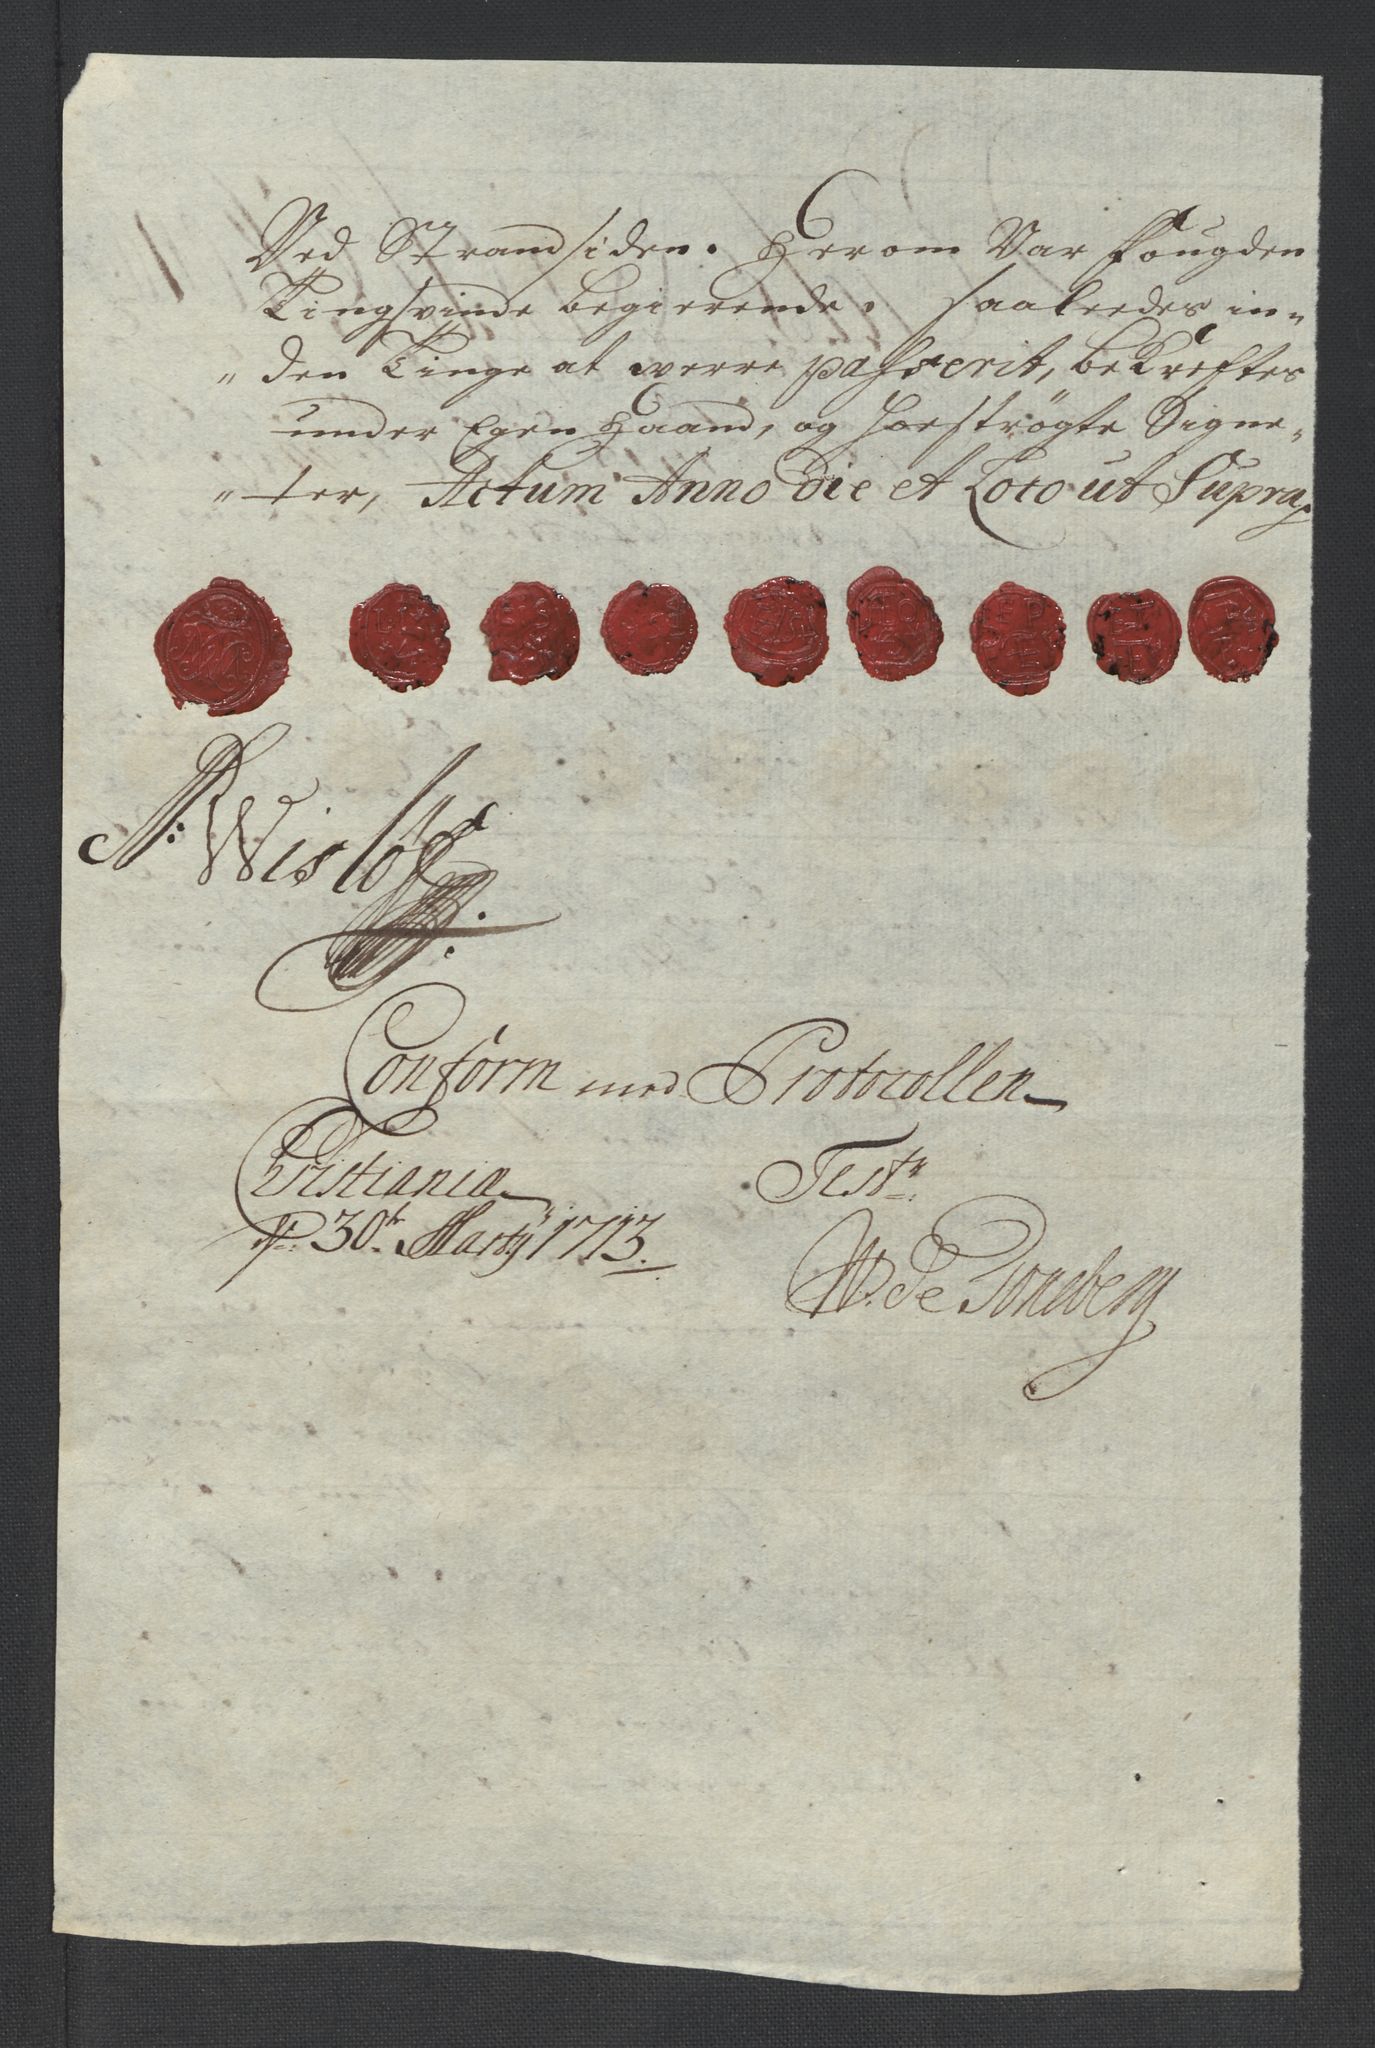 Ved Strandsiden. Herom Var Fougden
Tingsvinde begierende. Saaleedes in-
den Tinge at werre passerit, bekreftes
under Egen Haand, og hoeströgte Signe-
ter, Actum Anno die et Loco ut Supra,
N: Wislöff
Conform med Protocollen
Christiania
30te Martÿ 1713.
Test:
W. De Toneberg